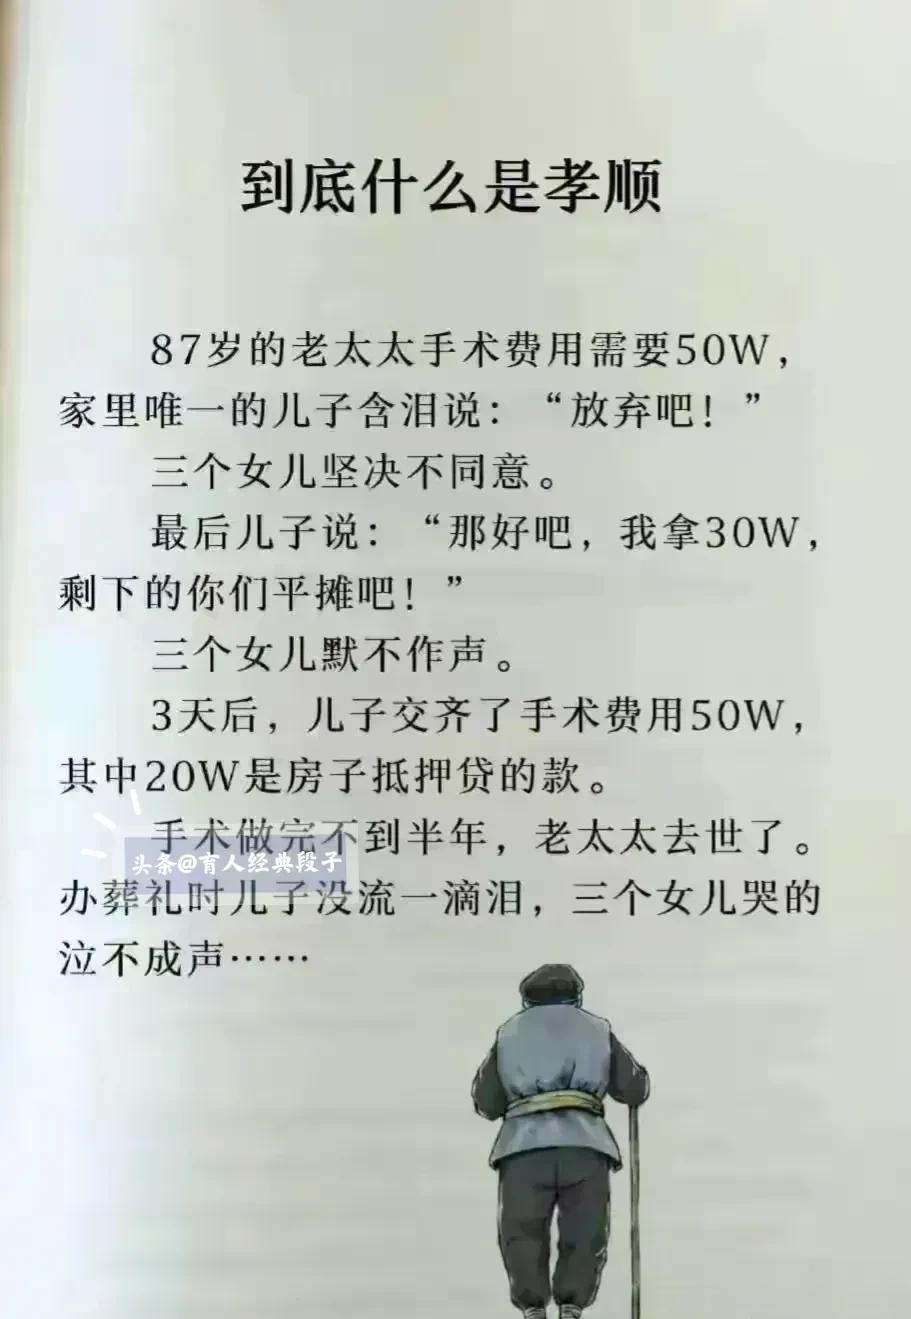 到底什么是孝顺
87岁的老太太手术费用需要50W，
家里唯一的儿子含泪说：“放弃吧！”
三个女儿坚决不同意。
最后儿子说：“那好吧，我拿30W，
剩下的你们平摊吧！”
三个女儿默不作声。
3天后，儿子交齐了手术费用50W，
其中20W是房子抵押贷的款。
手术做完不到半年，老太太去世了。
头条@育人经典段子
办葬礼时儿子没流一滴泪，三个女儿哭的
泣不成声……